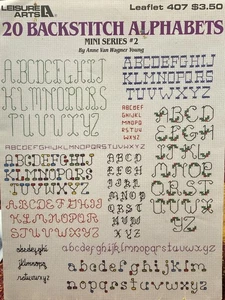 LEISURE ARTS
Leaflet 407 $3.50
20 BACKSTITCH ALPHABETS
MINI SERIES #2
By Anne Van Wagner Young
ABCDEFGHIJ
KLMNOPQRS
TUVWXYZ
ABCDEFGHIJ
KLMNOPQRS
TUVWXYZ
ABCDEF
GHIJKL
MNO
PQRS
TUV
WXYZ
ABCDEFGHIJKLMNOPQRSTUVWXYZ
ABCDEFGHIJ
KLMNOPQRS
TUVWXYZ
ABCD
EFGH
IJKL
MNOP
QRST
UVWX
YZ
ABCD
EFGH
IJKL
MNO
PQRS
TUV
WXYZ
ABCDEFGHI
JKLMNOPQR
STUVWXYZ
abcdefghi
jklmnopq
rstuvwxyz
abcdefghijklmnopqrstuvwxyz
abcdefghijklm
nopqrstuvwxyz